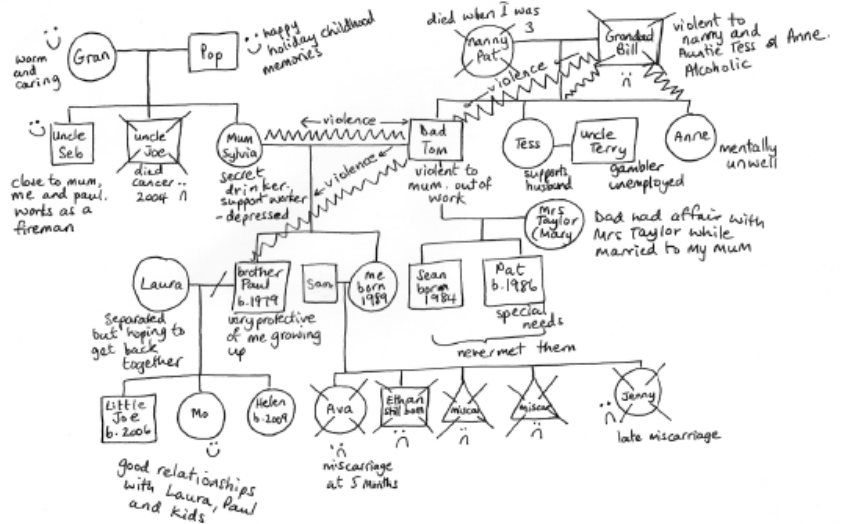 warm
and
caring
Gran
Pop
happy
holiday childhood
memories
died when I was
3
Nanny
Pat
Grandad
Bill
violent to
nanny and
Auntie Tess & Anne.
Alcoholic
violence
uncle
Seb
close to mum,
me and paul.
works as a
fireman
uncle
Joe
died
cancer..
2004
Mum
Sylvia
secret
drinker.
support worker
- depressed
violence
violence
Dad
Tom
violent to
mum. out of
work
Tess
supports
husband
uncle
Terry
gambler
unemployed
Anne
mentally
unwell
Mrs
Taylor
(Mary
Dad had affair with
Mrs Taylor while
married to my mum
Laura
Separated
but hoping to
get back
together
brother
Paul
b.1979
very protective
of me growing
up
Sam
me
born
1989
Sean
born
1984
Pat
b.1986
special
needs
never met them
Little
Joe
b.2006
Mo
Helen
b.2009
good relationships
with Laura, Paul
and kids
Ava
miscarriage
at 5 months
Ethan
still born
miscar
miscar
Jenny
late miscarriage